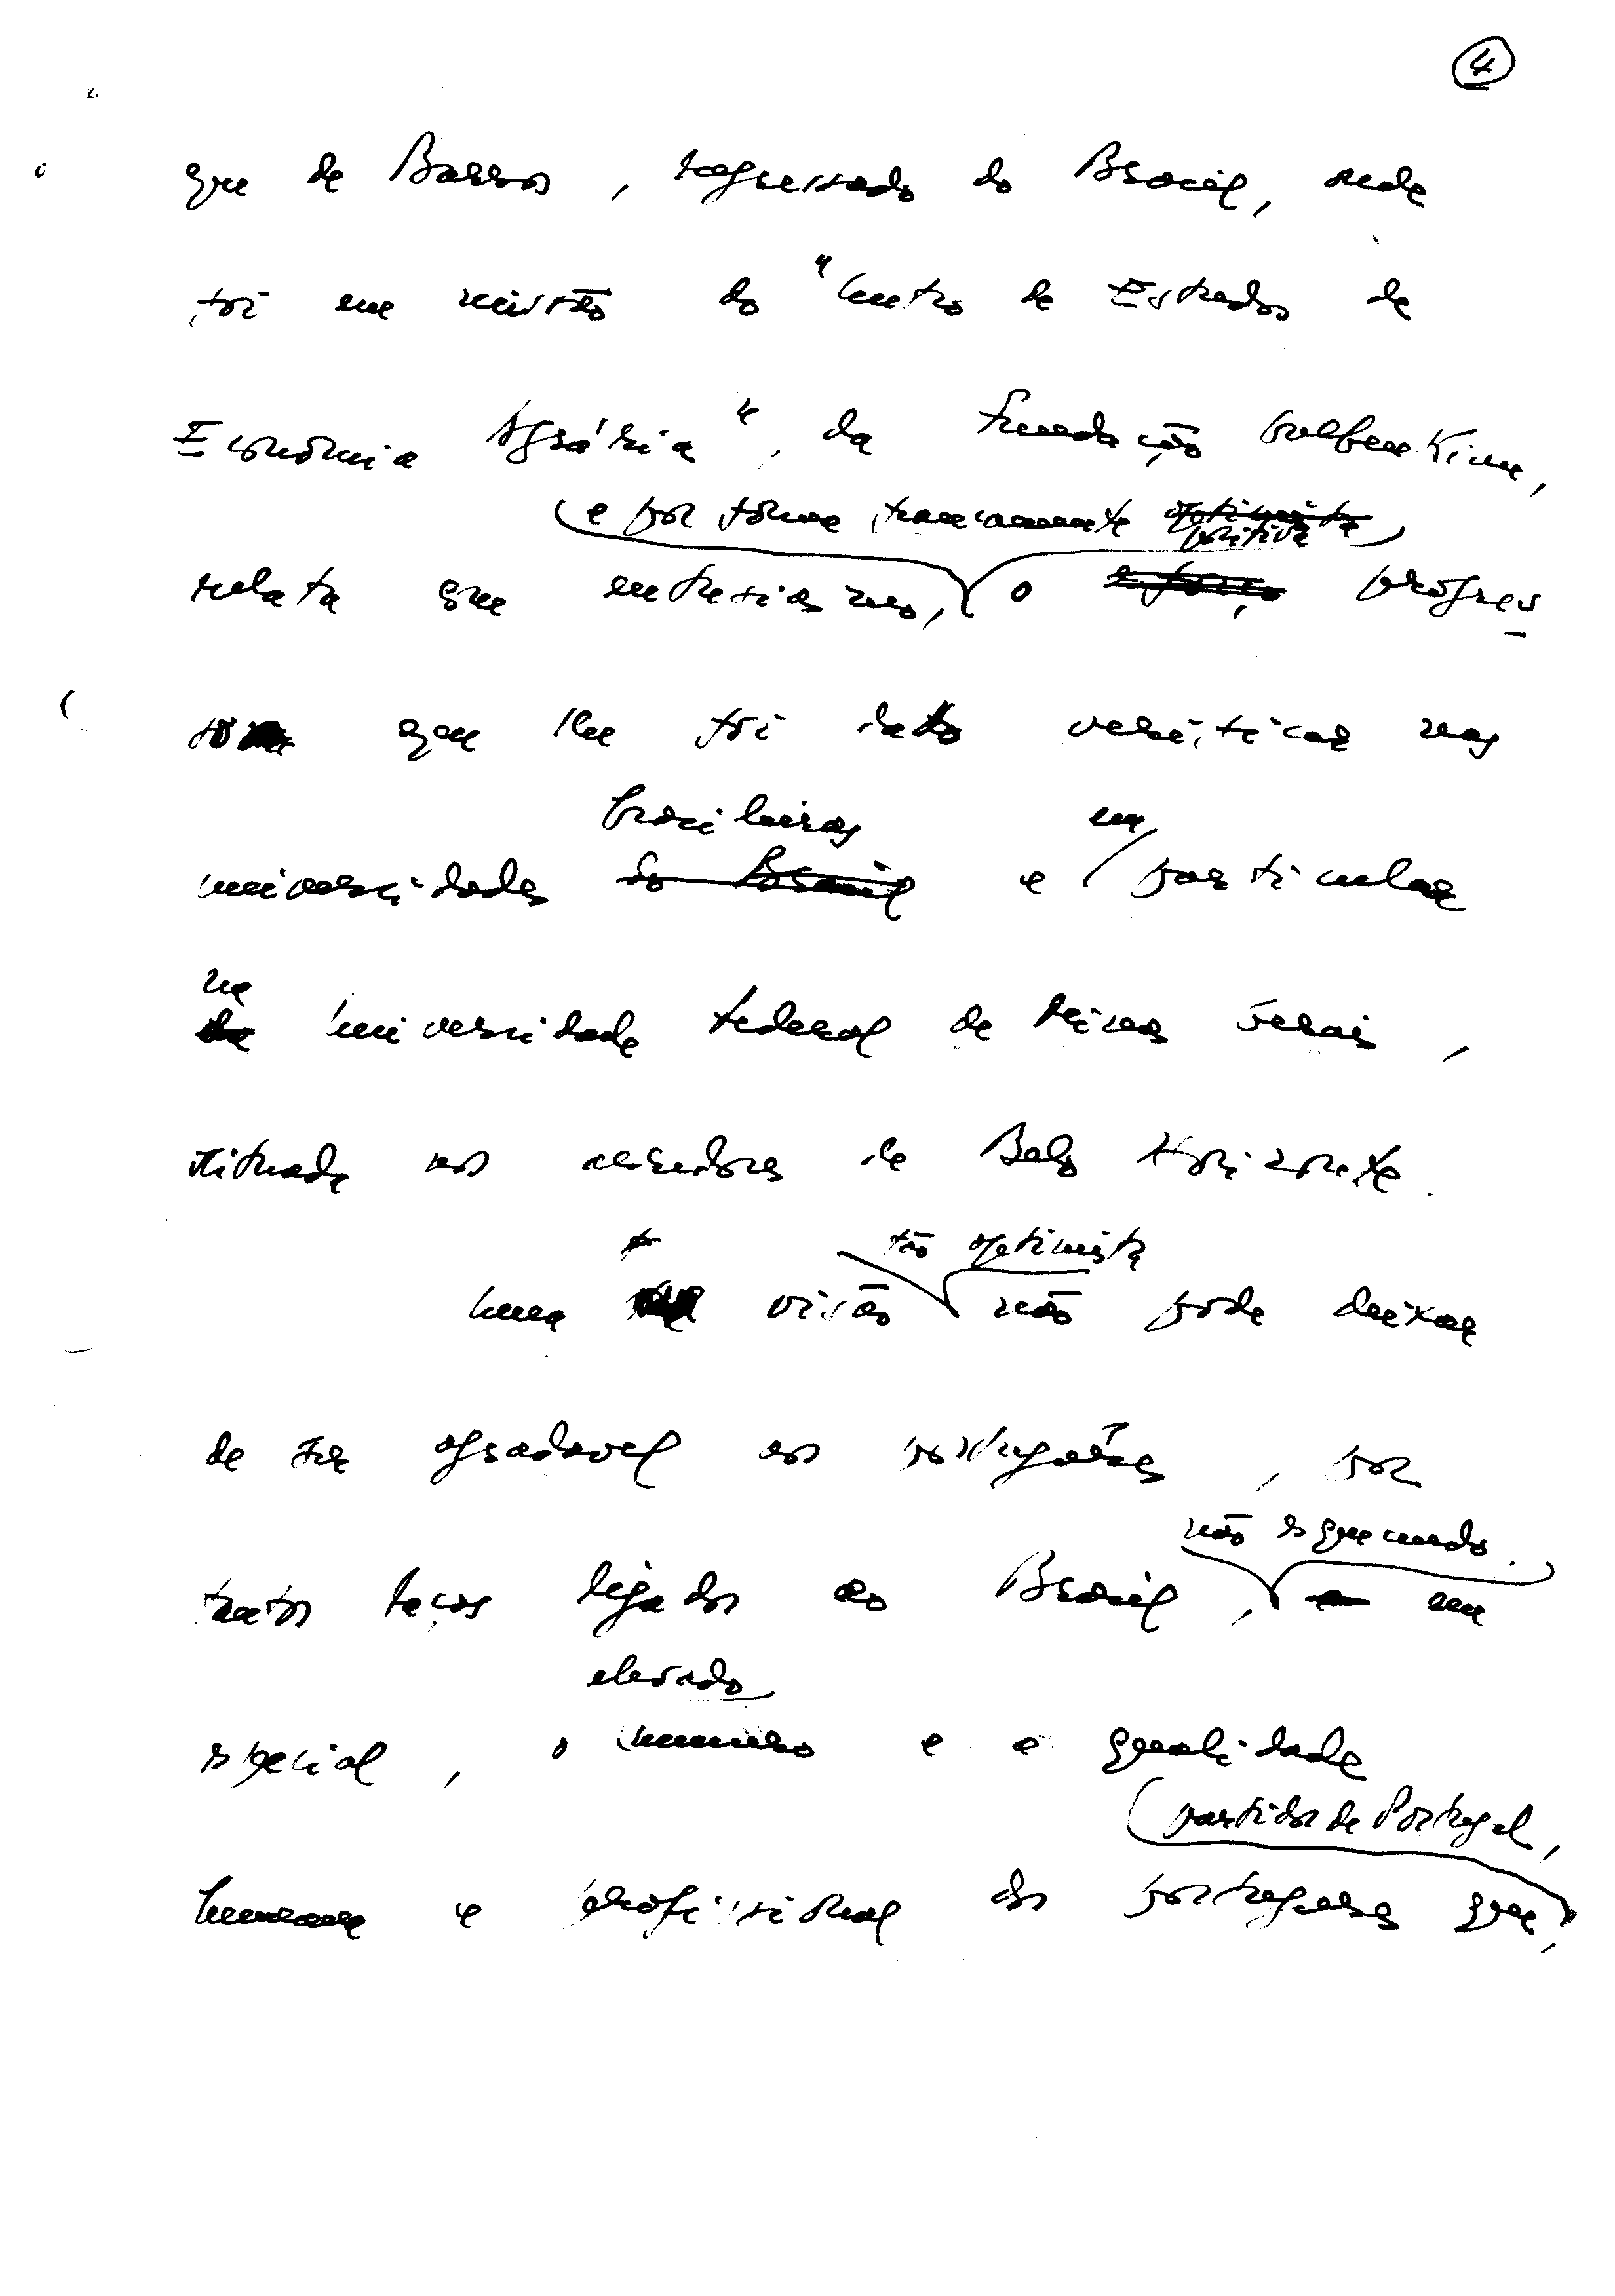 4
que de Barros, regressado do Brasil, onde
foi em missão do "Centro de Estudos de
Economia Agrária", da Fundação Gulbenkian,
e por forma francamente optimista positiva
relata com entusiasmo, o esforço progres
so que lhe foi dado verificar nas
brasileiras em
universidades do Brasil e particular
na
da Universidade Federal de Minas Gerais,
situada nos arredores de Belo Horizonte.
tão optimista
Uma visão não pode deixar
de ser agradavel aos portugueses, por
não esquecendo
tantos laços ligados ao Brasil, e em
elevado
especial, o numero e a qualidade
partidos de Portugal,
humana e profissional dos portugueses que,